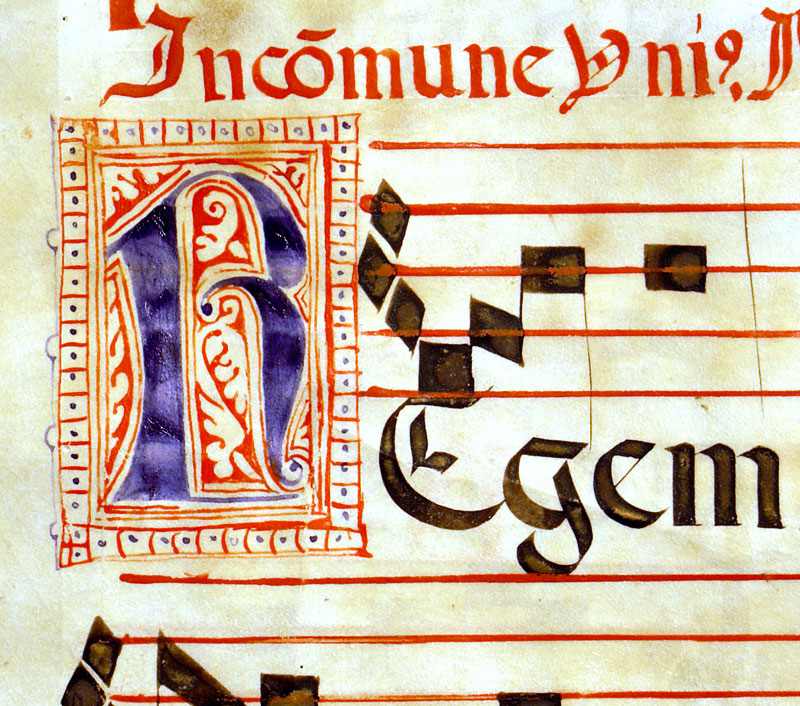 In cōmune Vniꝰ. M
REgem